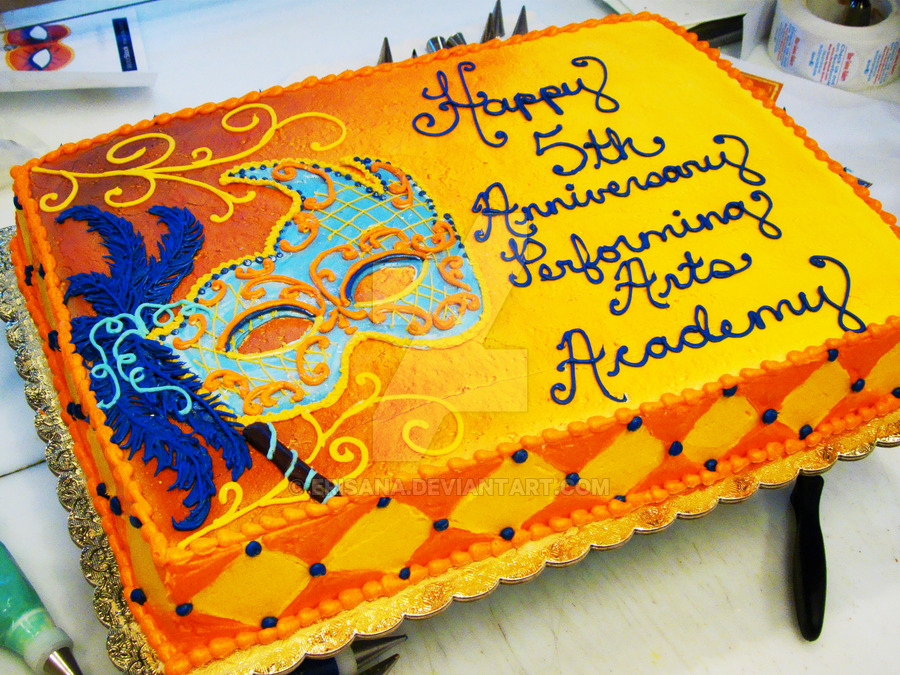 Happy
5th
Anniversary
Performing
Arts
Academy
ELISANA.DEVIANTART.COM